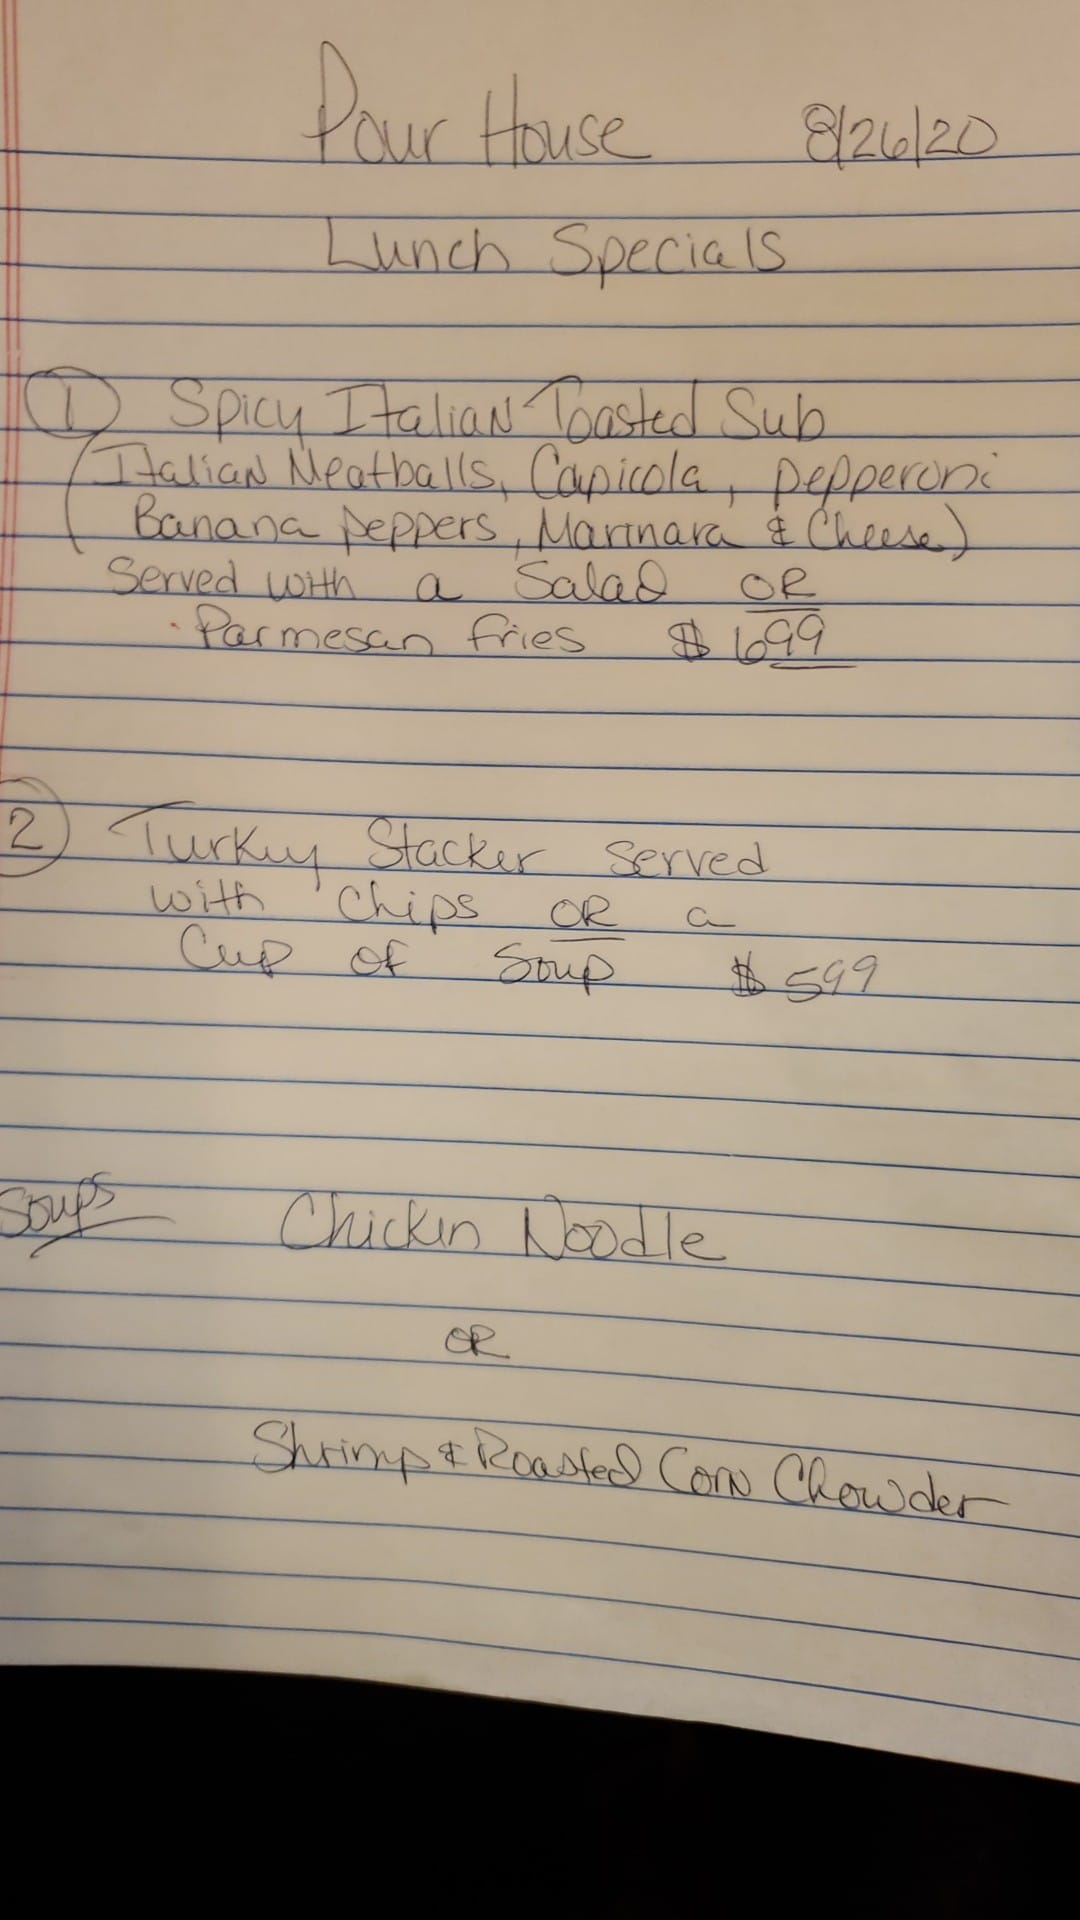 Pour House 8/26/20
Lunch Specials
1 Spicy Italian Toasted Sub
(Italian Meatballs, Capicola, pepperoni
Banana peppers, Marinara & Cheese)
Served with a Salad OR
Parmesan fries $ 699
2 Turkey Stacker Served
with Chips OR a
Cup of Soup $ 599
Soups Chicken Noodle
OR
Shrimp & Roasted Corn Chowder